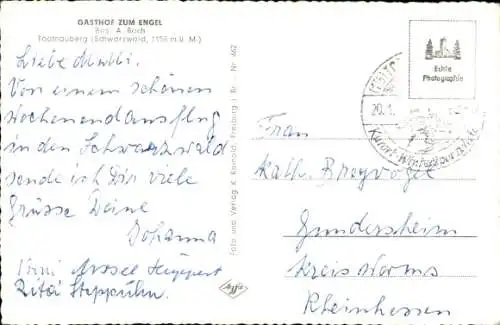 GASTHOF ZUM ENGEL
Bes. A. Boch
Todtnauberg (Schwarzwald, 1156 m ü. M.)
Liebe Mutti!
Von einem schönen
Wochenendausflug
in den Schwarzwald
sende ich Dir viele
Grüsse Deine
Johanna
Rita
Foto und Verlag K. Freiburg i. Br. Nr. 462
Agfa
Echte
Photographie
20.1.
Kurort - Wintersportplatz
Frau
Kath.
Gundersheim
Kreis Worms
Rheinhessen